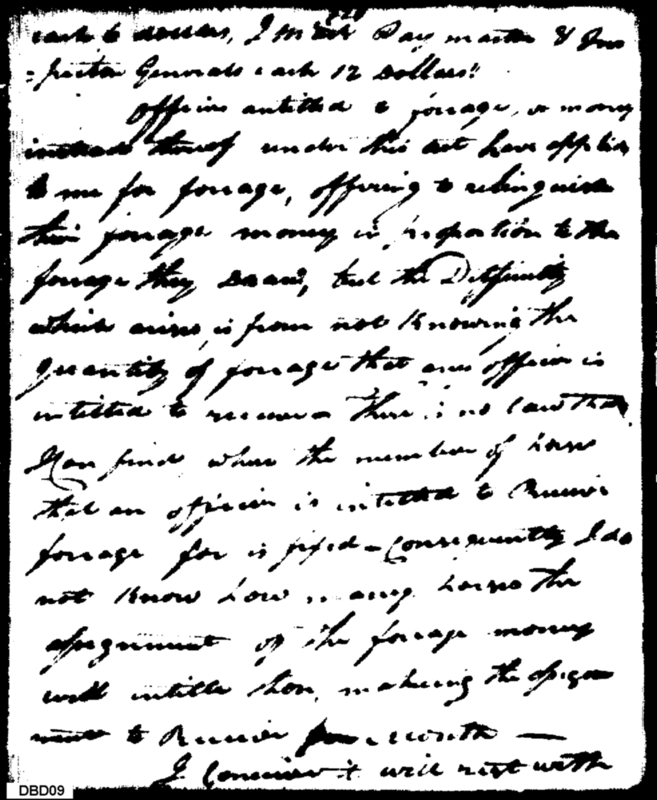 each 6 dollars, Pay master & Ins
= pector Generals each 12 Dollars"
Officers antitled to forrage, or money
instead thereof under this act have applied
to me for forrage, offering to relinquish
their forrage money in proportion to the
forrage they Draw, but the Difficulty
which arises, is from not Knowing the
Quantity of forrage that an officer is
intitled to receive - There is no law that
I Can find where the number of horses
that an officer is intitled to Receive
forrage for is fixed - Consequently I do
not Know how many horses the
assignment of the forrage money
will intitle them, making the assign
ment to Receive month —
I Conceive it will rest with
DBD09